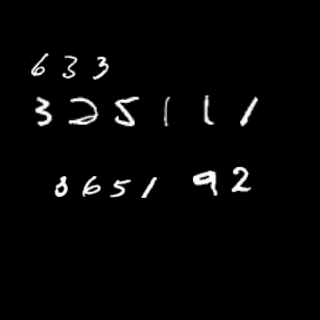 633
325111
8651 92